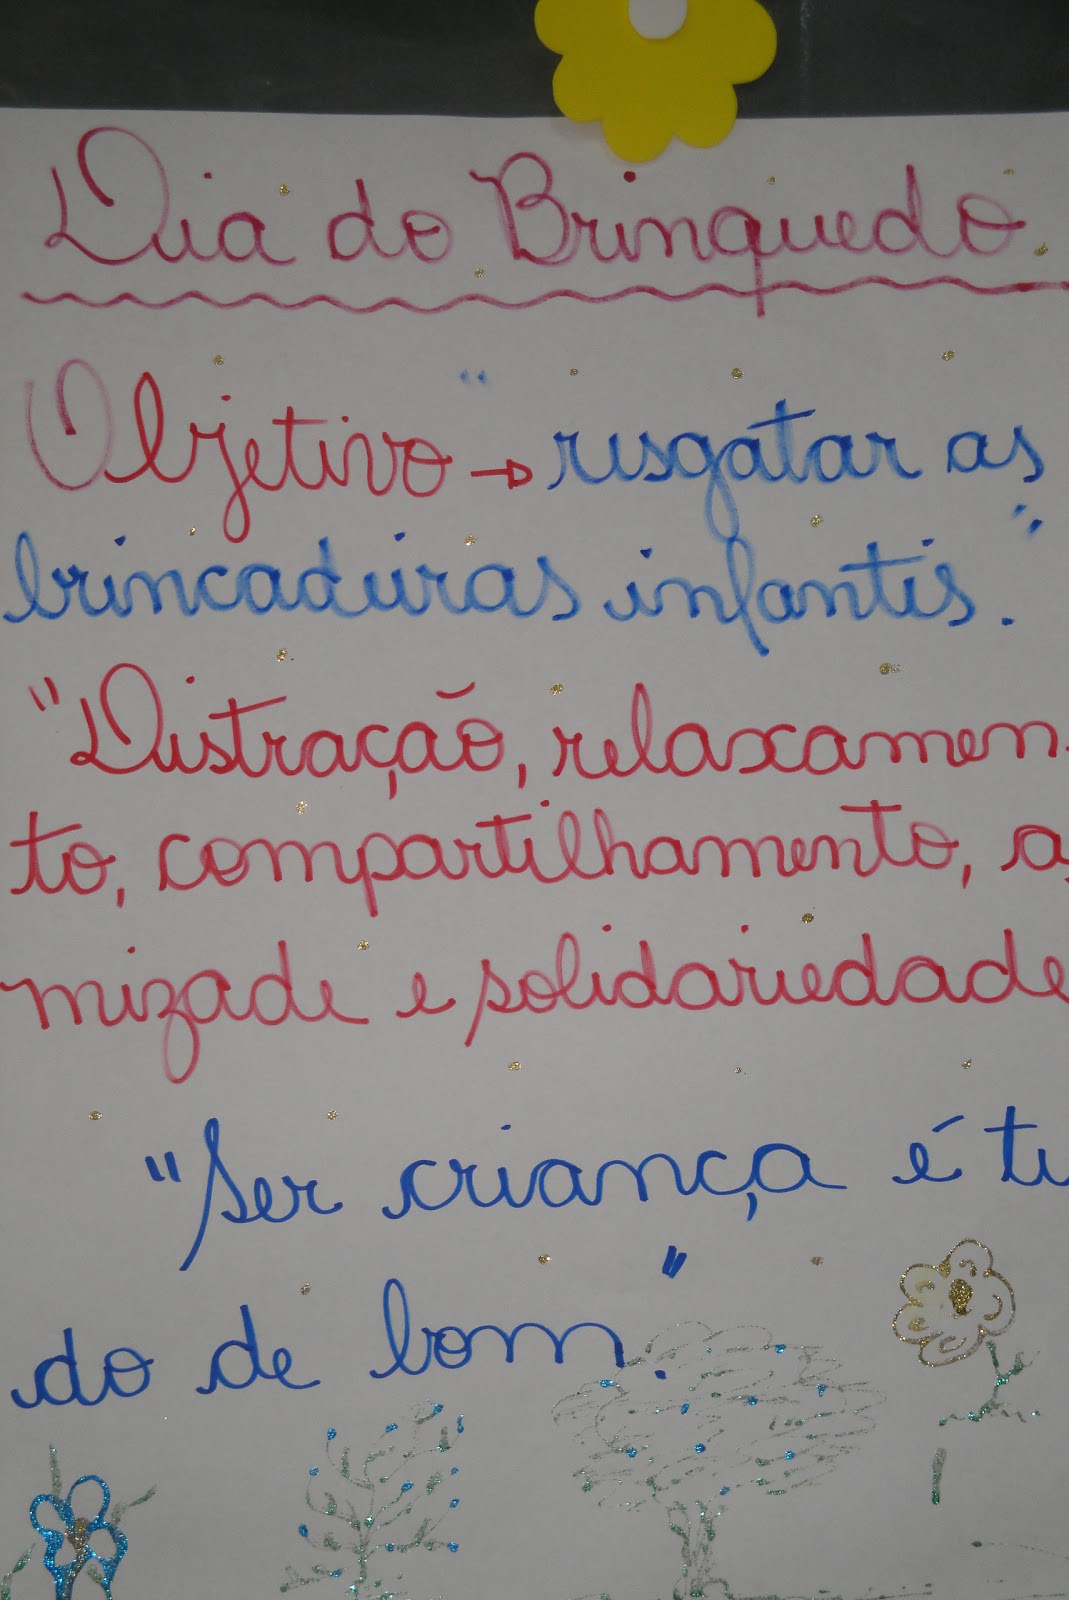 Dia do Brinquedo
Objetivo → "resgatar as
brincadeiras infantis."
"Distração, relaxamen-
to, compartilhamento, a-
mizade e solidariedade
"Ser criança é tu
do de bom."